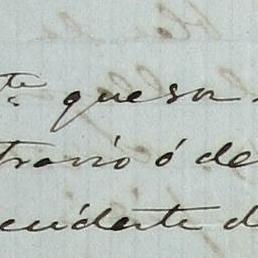 te que son
travio ó de
cendente d